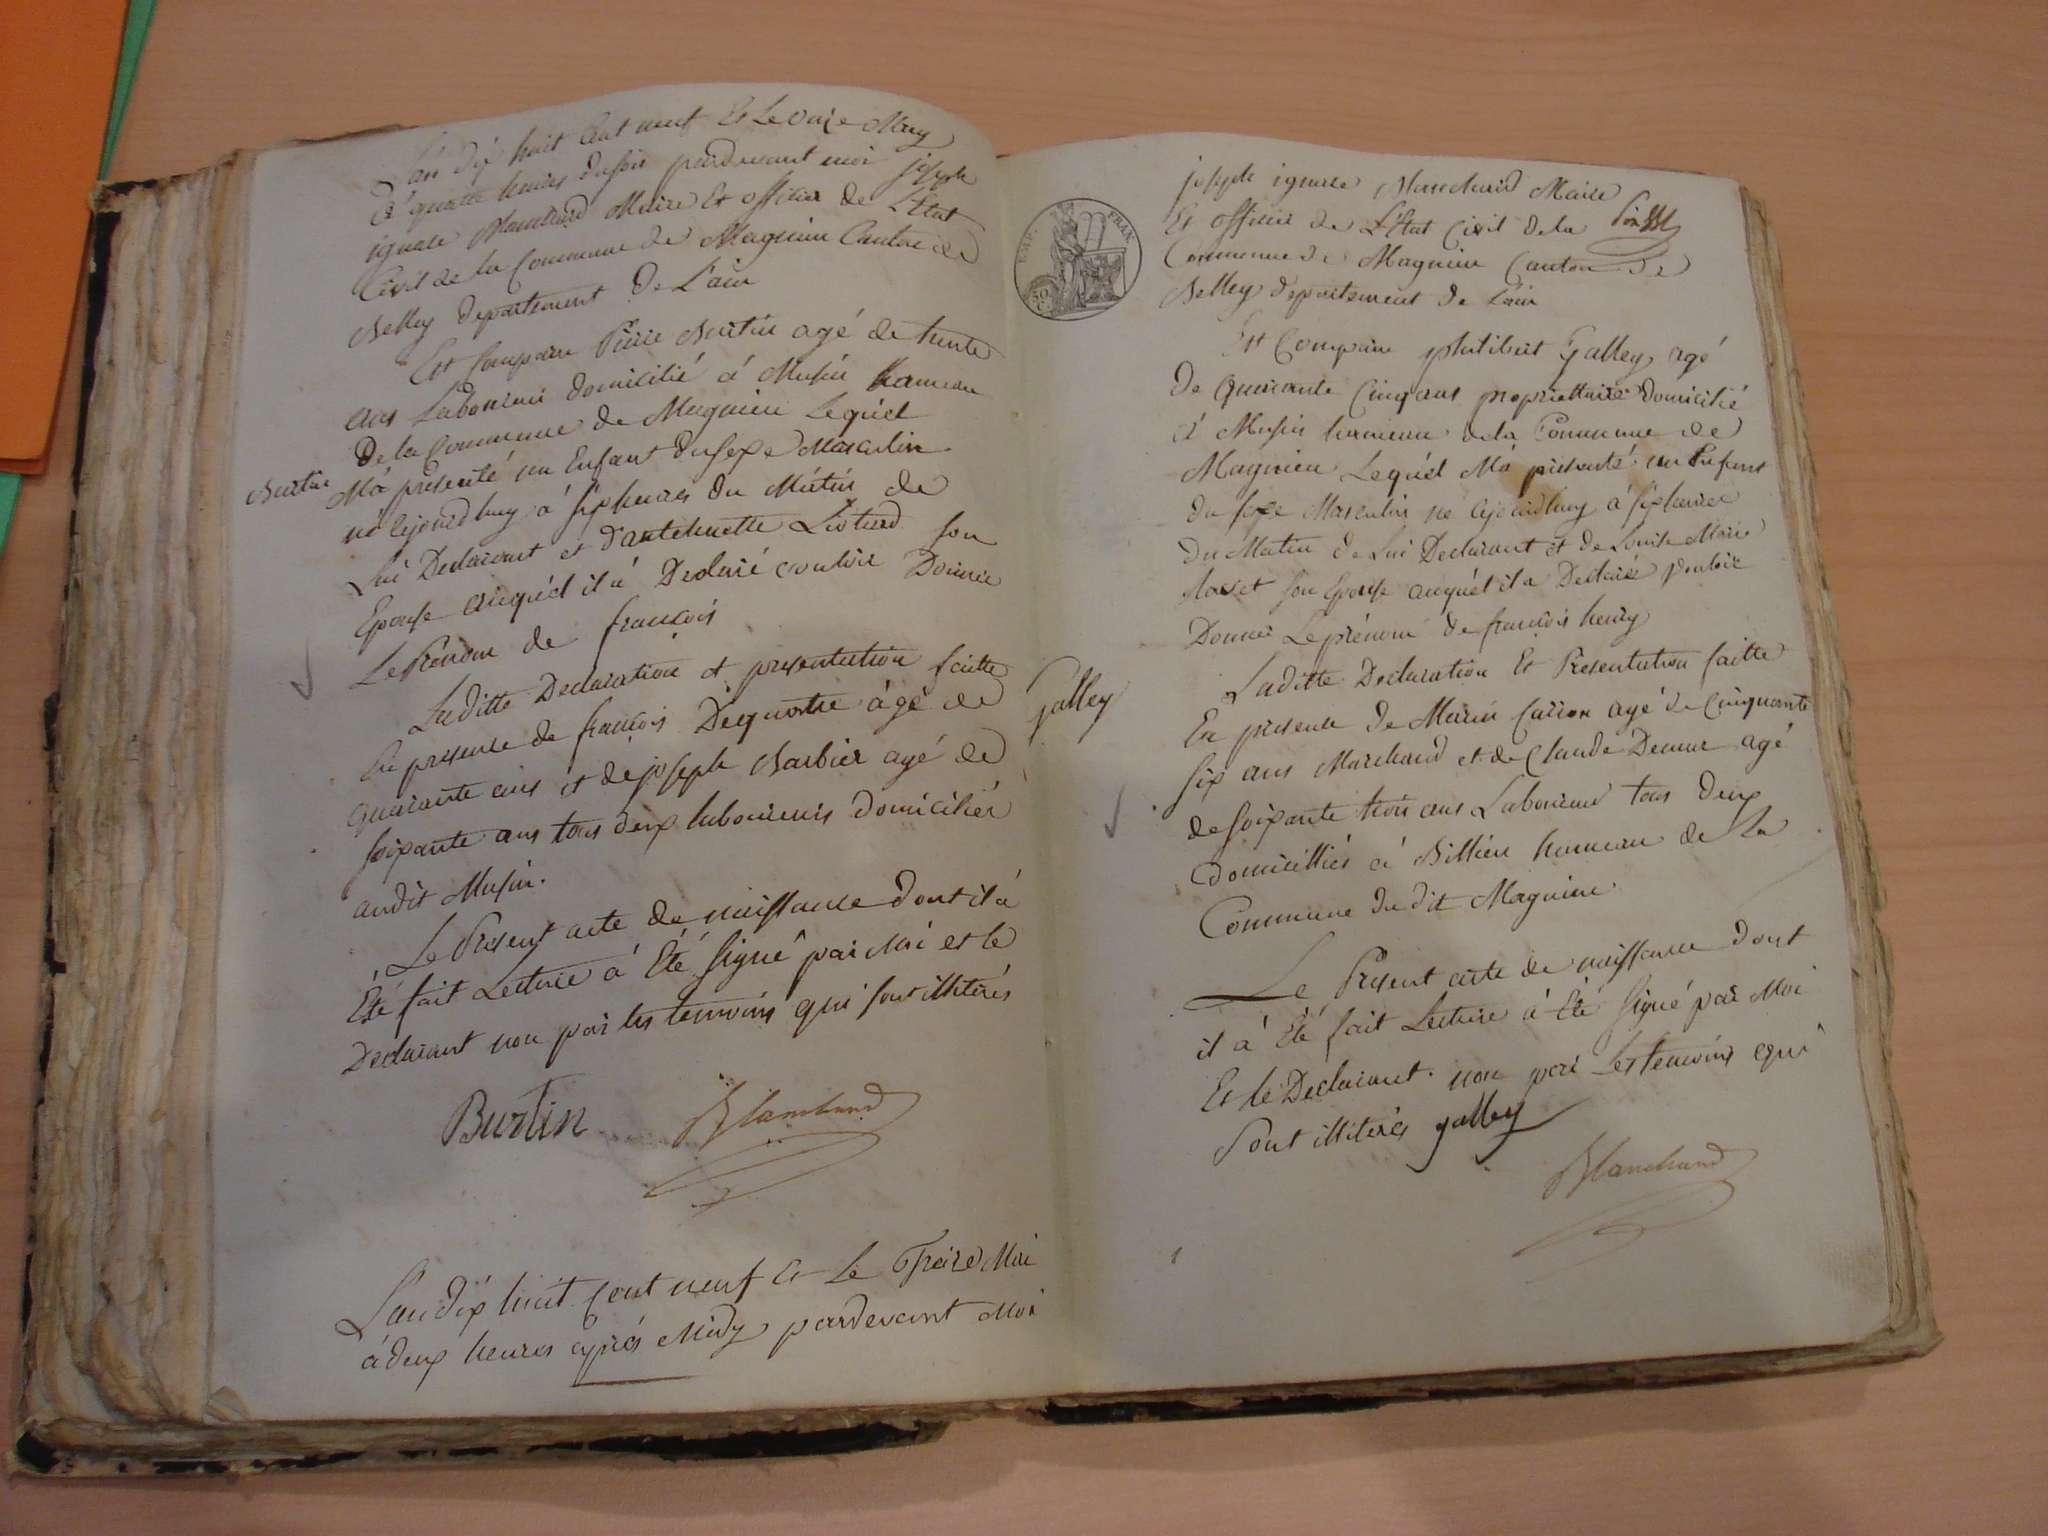 L'an dix huit Cent neuf Et Le onze May
à quatre heures du soir pardevant moi joseph
ignace Blanchard Maire Et officier de L'Etat
Civil de la Commune de Magnieu Canton de
Belley departement de L'ain
Est Comparu Pierre Burtin agé de trente
ans Laboureur domicilié à Musin hameau
De la Commune de Magnieu Lequel
Burtin
M'a présenté un Enfant du sexe Masculin
né cejourdhuy à six heures du Matin de
Lui Declarant et d'antoinette Liotard son
Epouse auquel il a Declaré vouloir Donner
Le Prénom de francois
Laditte Declaration et presentation faitte
En presence de francois Dequatre âgé de
quarante ans et de joseph Barbier agé de
soixante ans tous deux laboureurs domiciliés
audit Musin.
Le Present acte de naissance dont il a
Eté fait Lecture a Eté signé par Moi et le
Declarant non par les temoins qui sont illiterés
Burtin Blanchard
L'an dix huit Cent neuf Et Le Treize Mai
à deux heures après Midy pardevant Moi
joseph ignace Blanchard Maire
Et officier de L'Etat Civil de la
Commune de Magnieu Canton de
Belley departement de L'ain
EMP. FRAN.
50 C
Est Comparu philibert Galley agé
De quarante Cinq ans propriettaire domicilié
à Musin hameau de la Commune de
Magnieu Lequel M'a présenté un Enfant
du sexe Masculin né cejourdhuy à six heures
Du Matin de Lui Declarant et de Louise Marie
son Epouse auquel il a Declaré vouloir
Donner Le prénom de francois henry
Galley
Laditte Declaration Et Presentation faitte
En presence de Marin Carron agé de Cinquante
six ans Marchand et de Claude agé
de soixante trois ans Laboureur tous deux
domicilliés à Billieu hameau de la
Commune du dit Magnieu.
Le Present acte de naissance dont
il a Eté fait Lecture à Eté signé par Moi
Et le Declarant. non par Les temoins qui
sont illiterés galley
Blanchard